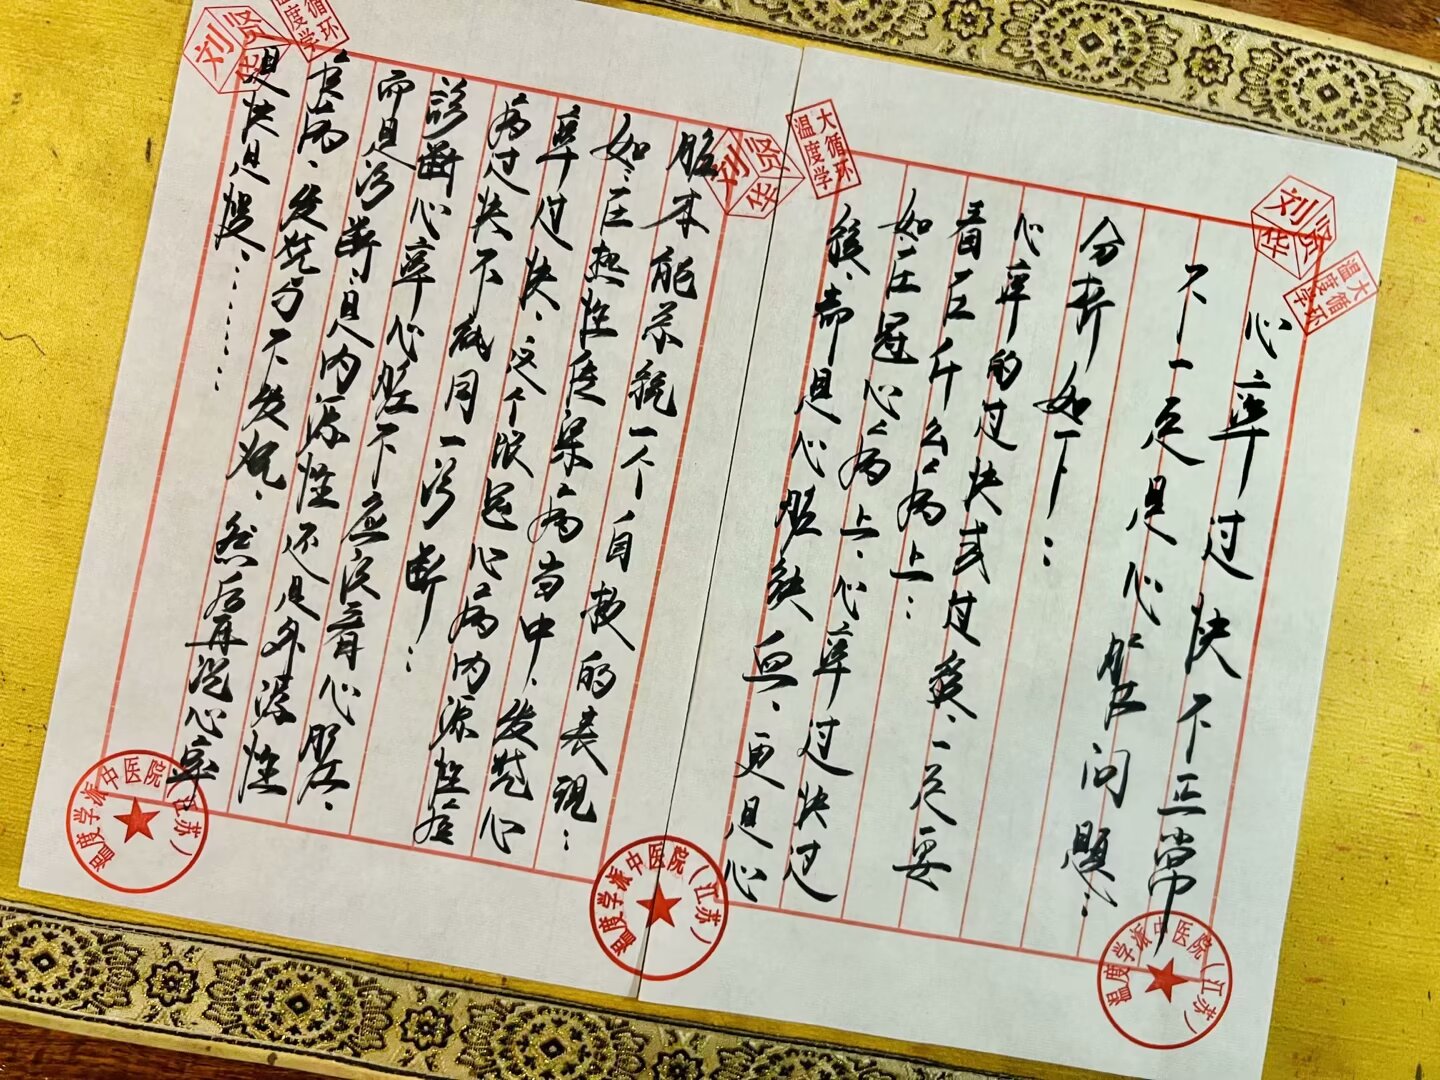 心率过快不正常
不一定是心脏问题：
分析如下：
心率的过快或过缓、一定要
看在什么病上：
如在冠心病上、心率过快过
缓、都是心脏缺血、更是心
脏本能系统一个自救的表现：
如在热性传染病当中、发烧心
率过快、这个跟冠心病内源性疾
病过快不能同一诊断：
诊断心率心脏下应该看心脏、
而是诊断、是内源性还是外源性
病、发烧与不发烧、然后再说心率
是快是慢.......
刘贤华
大循环温度学
刘贤华
大循环温度学
刘贤华
大循环温度学
温度学派中医院（江苏）
温度学派中医院（江苏）
温度学派中医院（江苏）